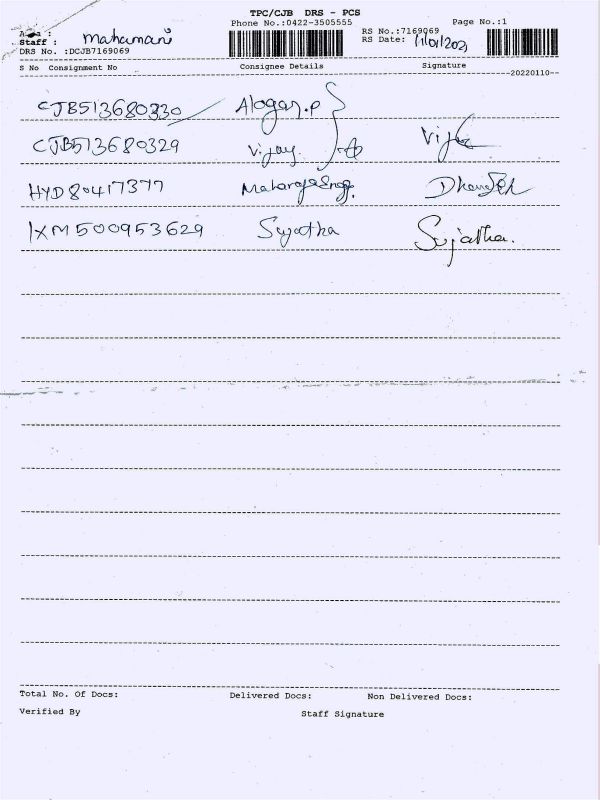 TPC/CJB DRS - PCS
Phone No.:0422-3505555 Page No.:1
Area : RS No.:7169069
Staff : mahamani RS Date: 11/01/202
DRS No. :DCJB7169069
S No Consignment No Consignee Details Signature
--20220110--
CJB513680330 Alogar.P
CJB513680329 Vijay
HYD80417377
IXM500953629 Sujatha Sujatha.
Total No. Of Docs: Delivered Docs: Non Delivered Docs:
Verified By Staff Signature